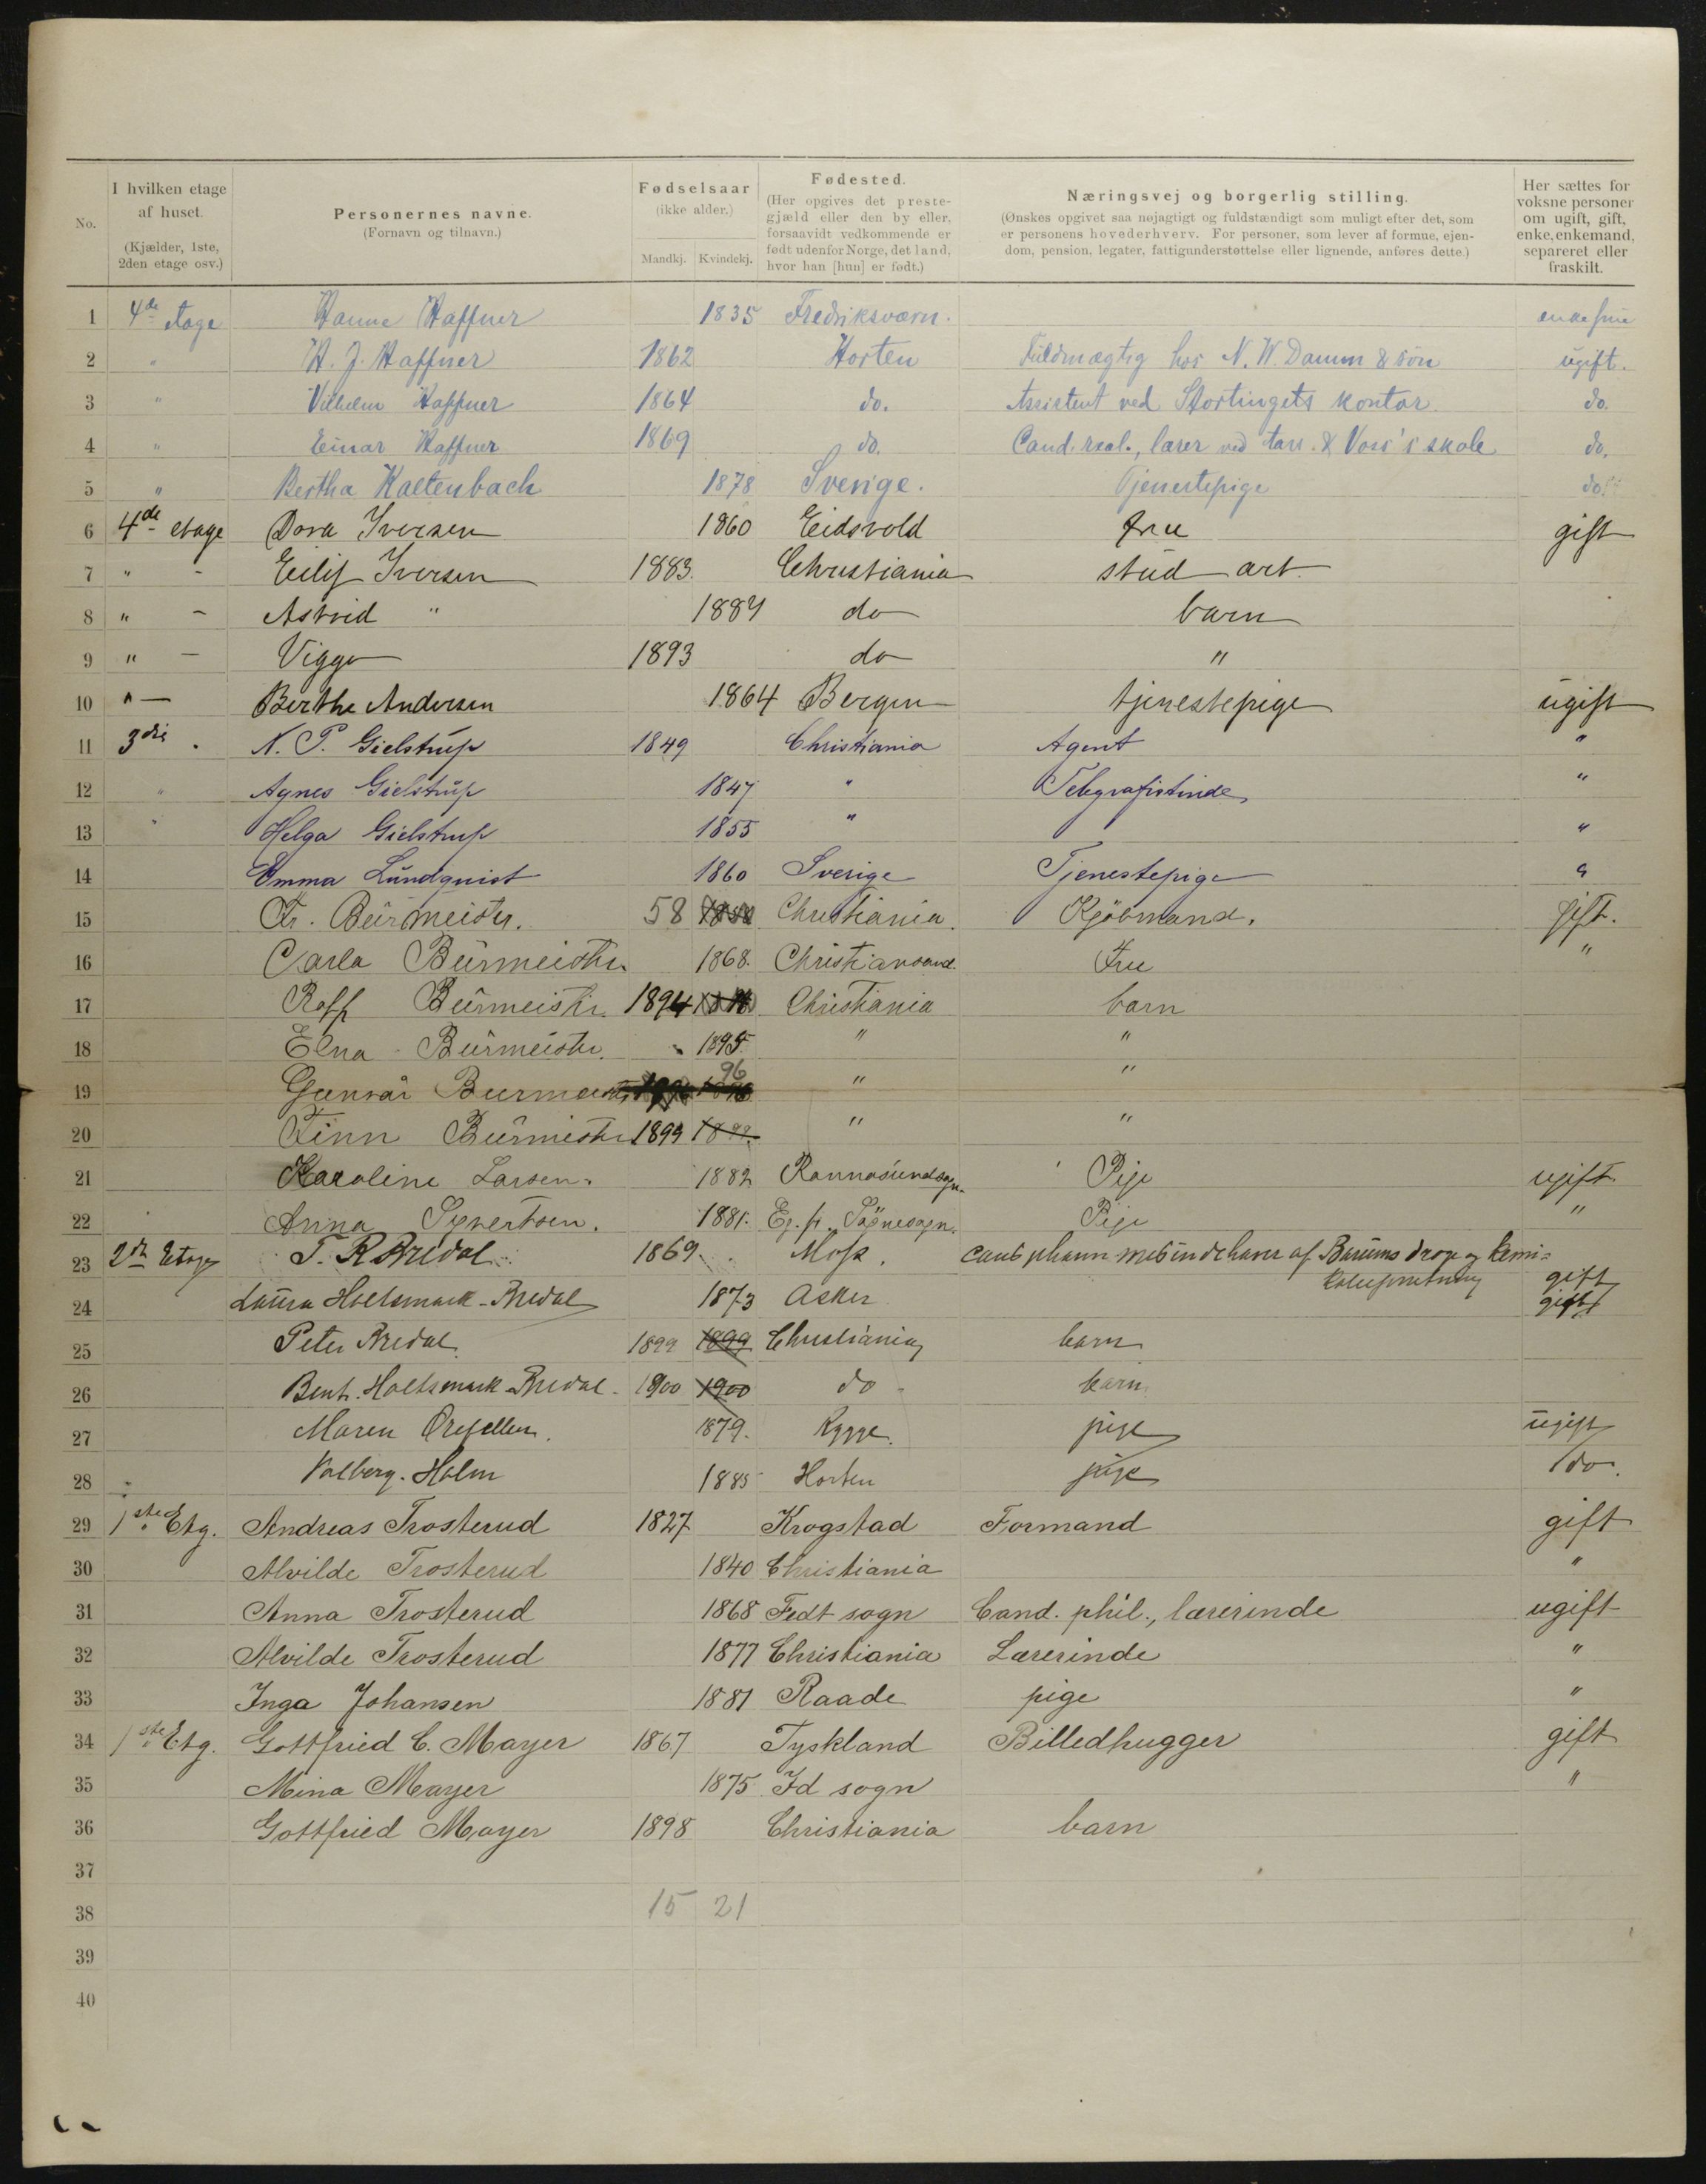 No.
I hvilken etage af huset.
(Kjælder, 1ste, 2den etage osv.)
Personernes navne.
(Fornavn og tilnavn.)
Fødselsaar
(ikke alder.)
Mandkj. Kvindekj.
Fødested.
(Her opgives det preste-
gjæld eller den by eller,
forsaavidt vedkommende er
født udenfor Norge, det land,
hvor han [hun] er født.)
Næringsvej og borgerlig stilling.
(Ønskes opgivet saa nøjagtigt og fuldstændigt som muligt efter det, som
er personens hovederhverv. For personer, som lever af formue, ejen-
dom, pension, legater, fattigunderstøttelse eller lignende, anføres dette.)
Her sættes for
voksne personer
om ugift, gift,
enke, enkemand,
separeret eller
fraskilt.
1 4de etage Hanne Haffner 1835 Fredriksværn. enkefrue
2 " H. J. Haffner 1862 Horten Fuldmægtig hos N. W. Damm & søn ugift.
3 " Vilhelm Haffner 1864 do. Assistent ved Stortingets kontor do.
4 " Einar Haffner 1869 do. Cand. real., lærer ved Aars & Voss's skole do.
5 " Bertha Kaltenbach 1878 Sverige. Tjenestepige do
6 4de etage Dora Iversen 1860 Eidsvold frue gift
7 " - Eilif Iversen 1883. Christiania stud art.
8 " - Astrid " 1887 do barn
9 " - Viggo 1893 do "
10 " - Berthe Andersen 1864 Bergen tjenestepige ugift
11 3die . N. P. Gielstrup 1849 Christiania Agent "
12 " Agnes Gielstrup 1847 " Telegrafistinde "
13 " Helga Gielstrup 1855 " "
14 Emma Lundquist 1860 Sverige Tjenestepige "
15 Fr. Burmeister. 58 Christiania. Kjöbmand. gift.
16 Carla Burmeister 1868. Christiansand. Frue "
17 Rolf Burmeister. 1894 Christiania barn
18 Elna Burmeister. 1895. " "
19 Gunvår Burmeister 96 " "
20 Finn Burmeister 1899 " "
21 Karoline Larsen. 1882 Pige ugift
22 Anna Syvertsen. 1881. Pige "
23 2den Etage T. R Bredal 1869. Moss. cand pharm medindehaver af Bærums droge og kemi=
kalieforretning gift
24 Laura Holtsmark-Bredal 1873 Asker gift
25 Peter Bredal 1899 1899 Christiania barn
26 Bent. Holtsmark-Bredal 1900 1900 do barn
27 Maren 1879. Rygge. pige ugift
28 Valborg. Holm 1885 Horten pige do.
29 1ste Etg. Andreas Trosterud 1827 Krogstad Formand gift
30 Alvilde Trosterud 1840 Christiania "
31 Anna Trosterud 1868 Fedt sogn Cand. phil., lærerinde ugift
32 Alvilde Trosterud 1877 Christiania Lærerinde "
33 Inga Johansen 1881 Raade pige "
34 1ste Etg. Gottfried C. Mayer 1867 Tyskland Billedhugger gift
35 Mina Mayer 1875 Id sogn "
36 Gottfried Mayer 1898 Christiania barn
37
38 15 21
39
40